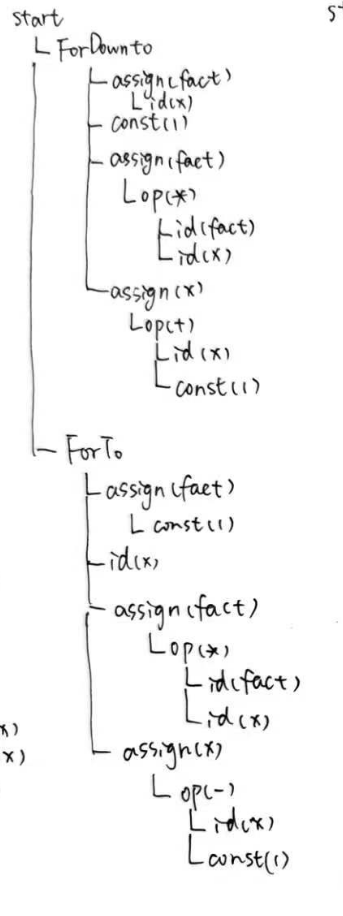 start
ForDownto
assign(fact)
id(x)
const(1)
assign(fact)
op(*)
id(fact)
id(x)
assign(x)
op(+)
id(x)
const(1)
ForTo
assign(faet)
const(1)
id(x)
assign(fact)
op(*)
id(fact)
id(x)
assign(x)
op(-)
id(x)
const(1)
x)
x)